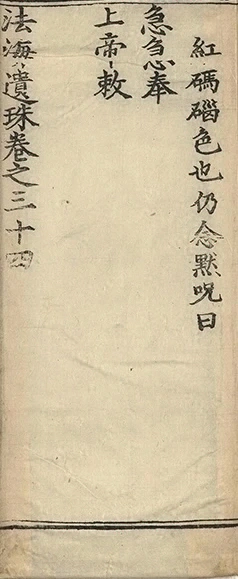 紅碼碯色也仍念默呪曰
急急奉
上帝敕
法海遺珠卷之三十四